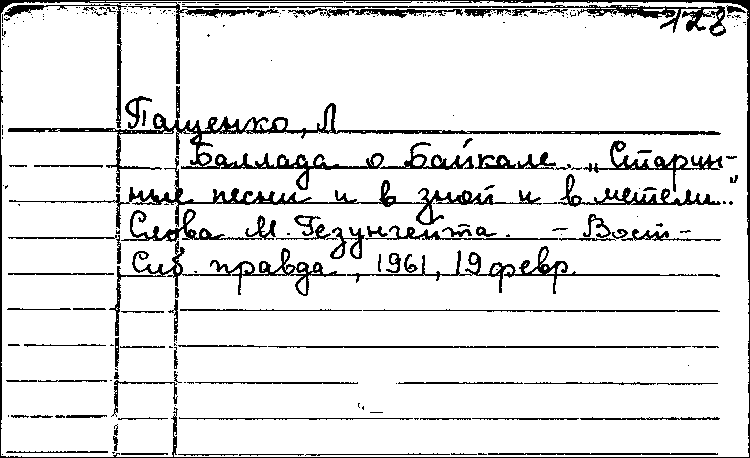 128
Пащенко, Л
Баллада о Байкале. „Старин-
ные песни и в зной и в метели..."
Слова М. Гезунгейта. - Вост-
Сиб. правда, 1961, 19 февр.